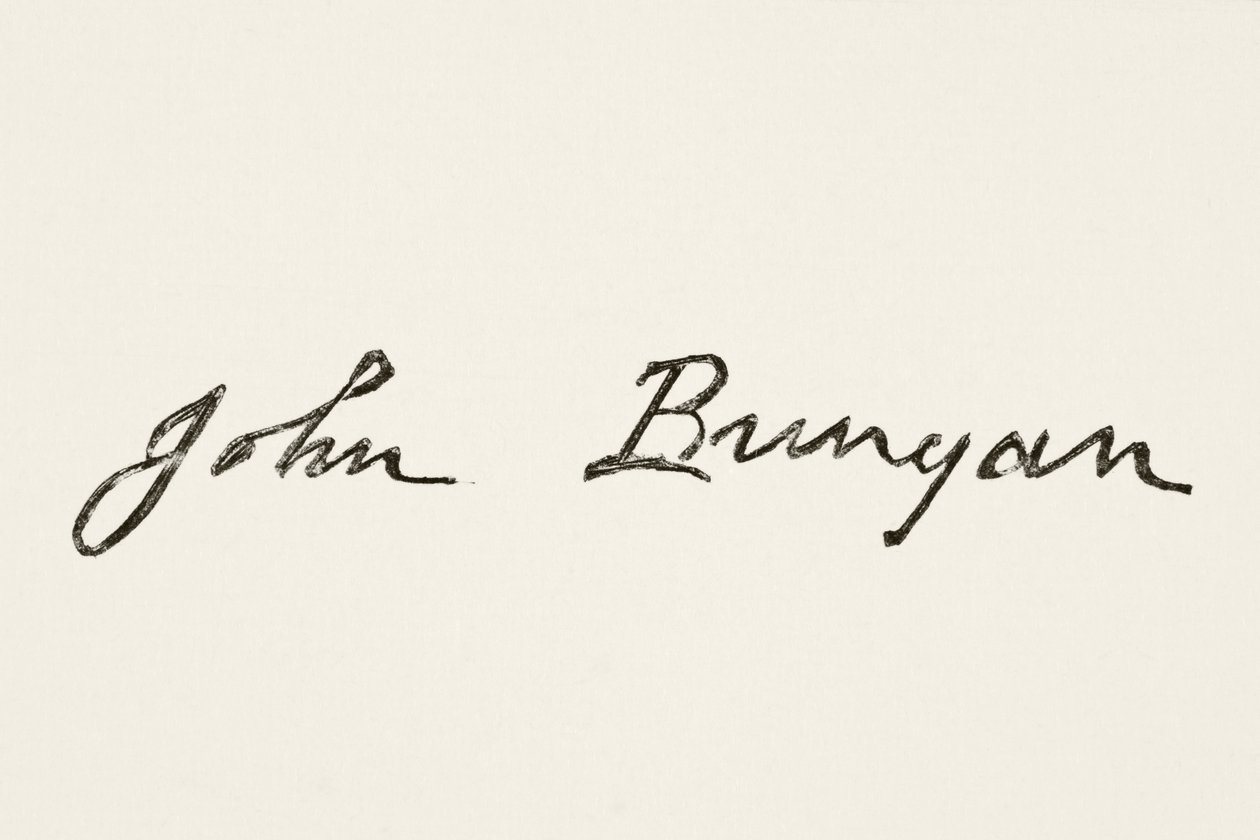 John Bunyan